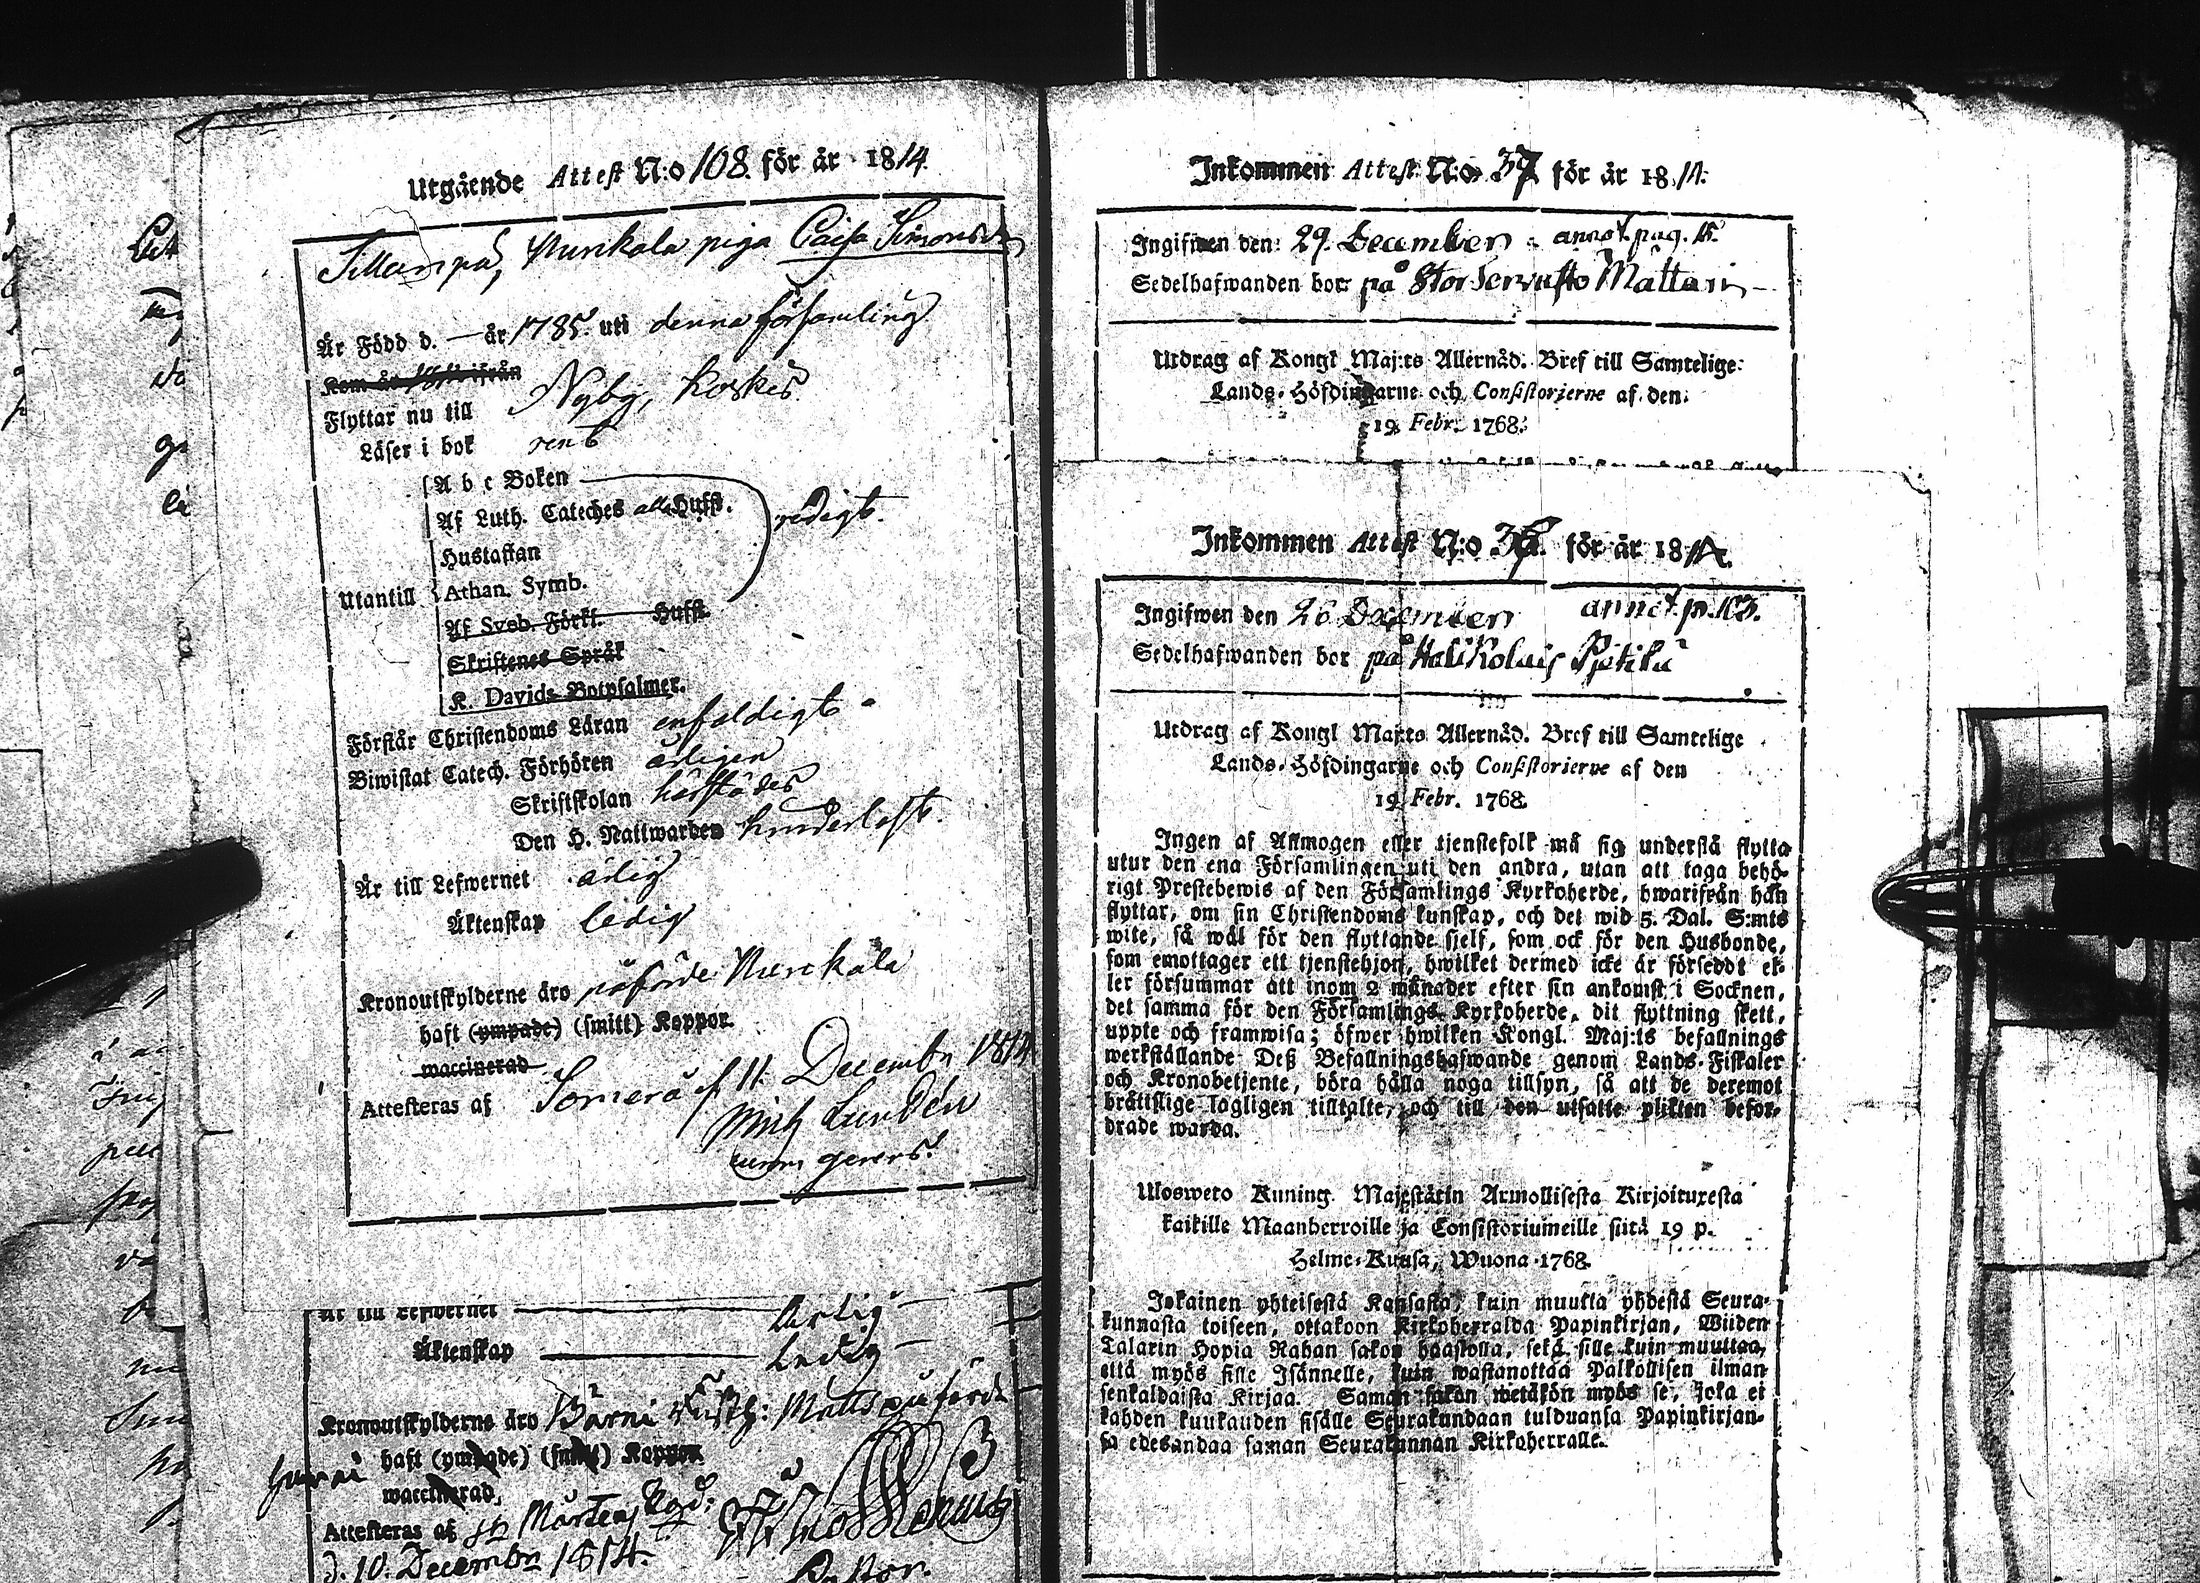 Utgående Attest N:o 108. för år 1814.
Nurkala piga Caisa Simonsdr
Är Född d. — år 1785. uti denna församling
Kom år ifrån
Flyttar nu till Nyby, Koskis
Läser i bok rent
A b c Boken
Af Luth. Cateches alla Hufst.
redigt.
Hustaflan
Utantill Athan. Symb.
Af Sveb. Förkl. Hufst.
Skriftenes Språk
K. Davids Botpsalmer.
Förstår Christendoms Läran enfaldigt
Biwistat Catech. Förhören årligen
Skriftskolan härstädes
Den H. Nattwarden hinderlöst.
Är till Lefwernet ärlig
Äktenskap ledig
Kronoutskylderne äro påförde Nurckala
haft (ympade) (smitt) Koppor.
waccinerad
Attesteras af Somero d 11. Decembr 1814
Mich Lundén
Är till Lefwernet ärlig
Äktenskap Ledig
Kronoutskylderne äro Matts påförde
haft (ympade) (smitt) Koppor
waccinerad,
Attesteras af St Mårtens
d. 10. Decembr 1814.
Pastor.
Inkommen Attest. N:o 37 för år 1814.
Ingifwen den: 29. December annot. pag. 15.
Sedelhafwanden bor: på Mattari
Utdrag af Kongl Maj:ts Allernåd. Bref till Samtelige
Lands-Höfdingarne och Consistorierne af den
19. Febr. 1768.
Inkommen Attest N:o 36. för år 1814.
Ingifwen den 26 December annot. p. 103.
Sedelhafwanden bor på Pietilä
Utdrag af Kongl Maj:ts Allernåd. Bref till Samtelige
Lands-Höfdingarne och Consistorierne af den
19. Febr. 1768.
Ingen af Allmogen eller tjenstefolk må sig understå flytta
utur den ena Församlingen uti den andra, utan att taga behö-
rigt Prestebewis af den Församlings Kyrkoherde, hwarifrån han
flyttar, om sin Christendoms kunskap, och det wid 5. Dal. S:mts
wite, så wäl för den flyttande sjelf, som ock för den Husbonde,
som emottager ett tjenstehjon, hwilket dermed icke är försedt el-
ler försummar att inom 2 månader efter sin ankomst i Socknen,
det samma för den Församlings Kyrkoherde, dit flyttning skett,
uppte och framwisa; öfwer hwilken Kongl. Maj:ts befallnings
werkställande Deß Befallningshafwande genom Lands-Fiskaler
och Kronobetjente, böra hålla noga tillsyn, så att de deremot
brättslige lagligen tilltalte, och till den utsatte plikten befor-
drade warda.
Ulosweto Kuning. Majestätin Armollisesta Kirjoituxesta
kaikille Maanherroille ja Consistoriumeille siitä 19 p.
Helme-Kuusa, Wuona 1768.
Jokainen yhteisestä Kansasta, kuin muutta yhdestä Seura-
kunnasta toiseen, ottakoon Kirkoherralda Papinkirjan, Wiiden
Talarin Hopia Rahan sakon haastolla, sekä sille kuin muuttaa,
että myös sille Isännelle, kuin wastanottaa Palkollisen ilman
senkaldaista Kirjaa. Saman sakon wetäkön myös se, joka ei
kahden kuukauden sisälle Seurakundaan tulduansa Papinkirjan-
sa edesandaa saman Seurakunnan Kirkoherralle.